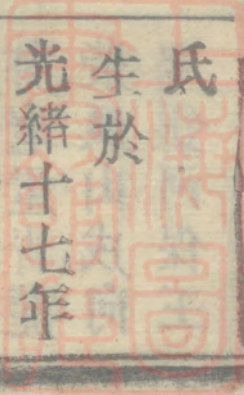 氏
生於
光緒十七年